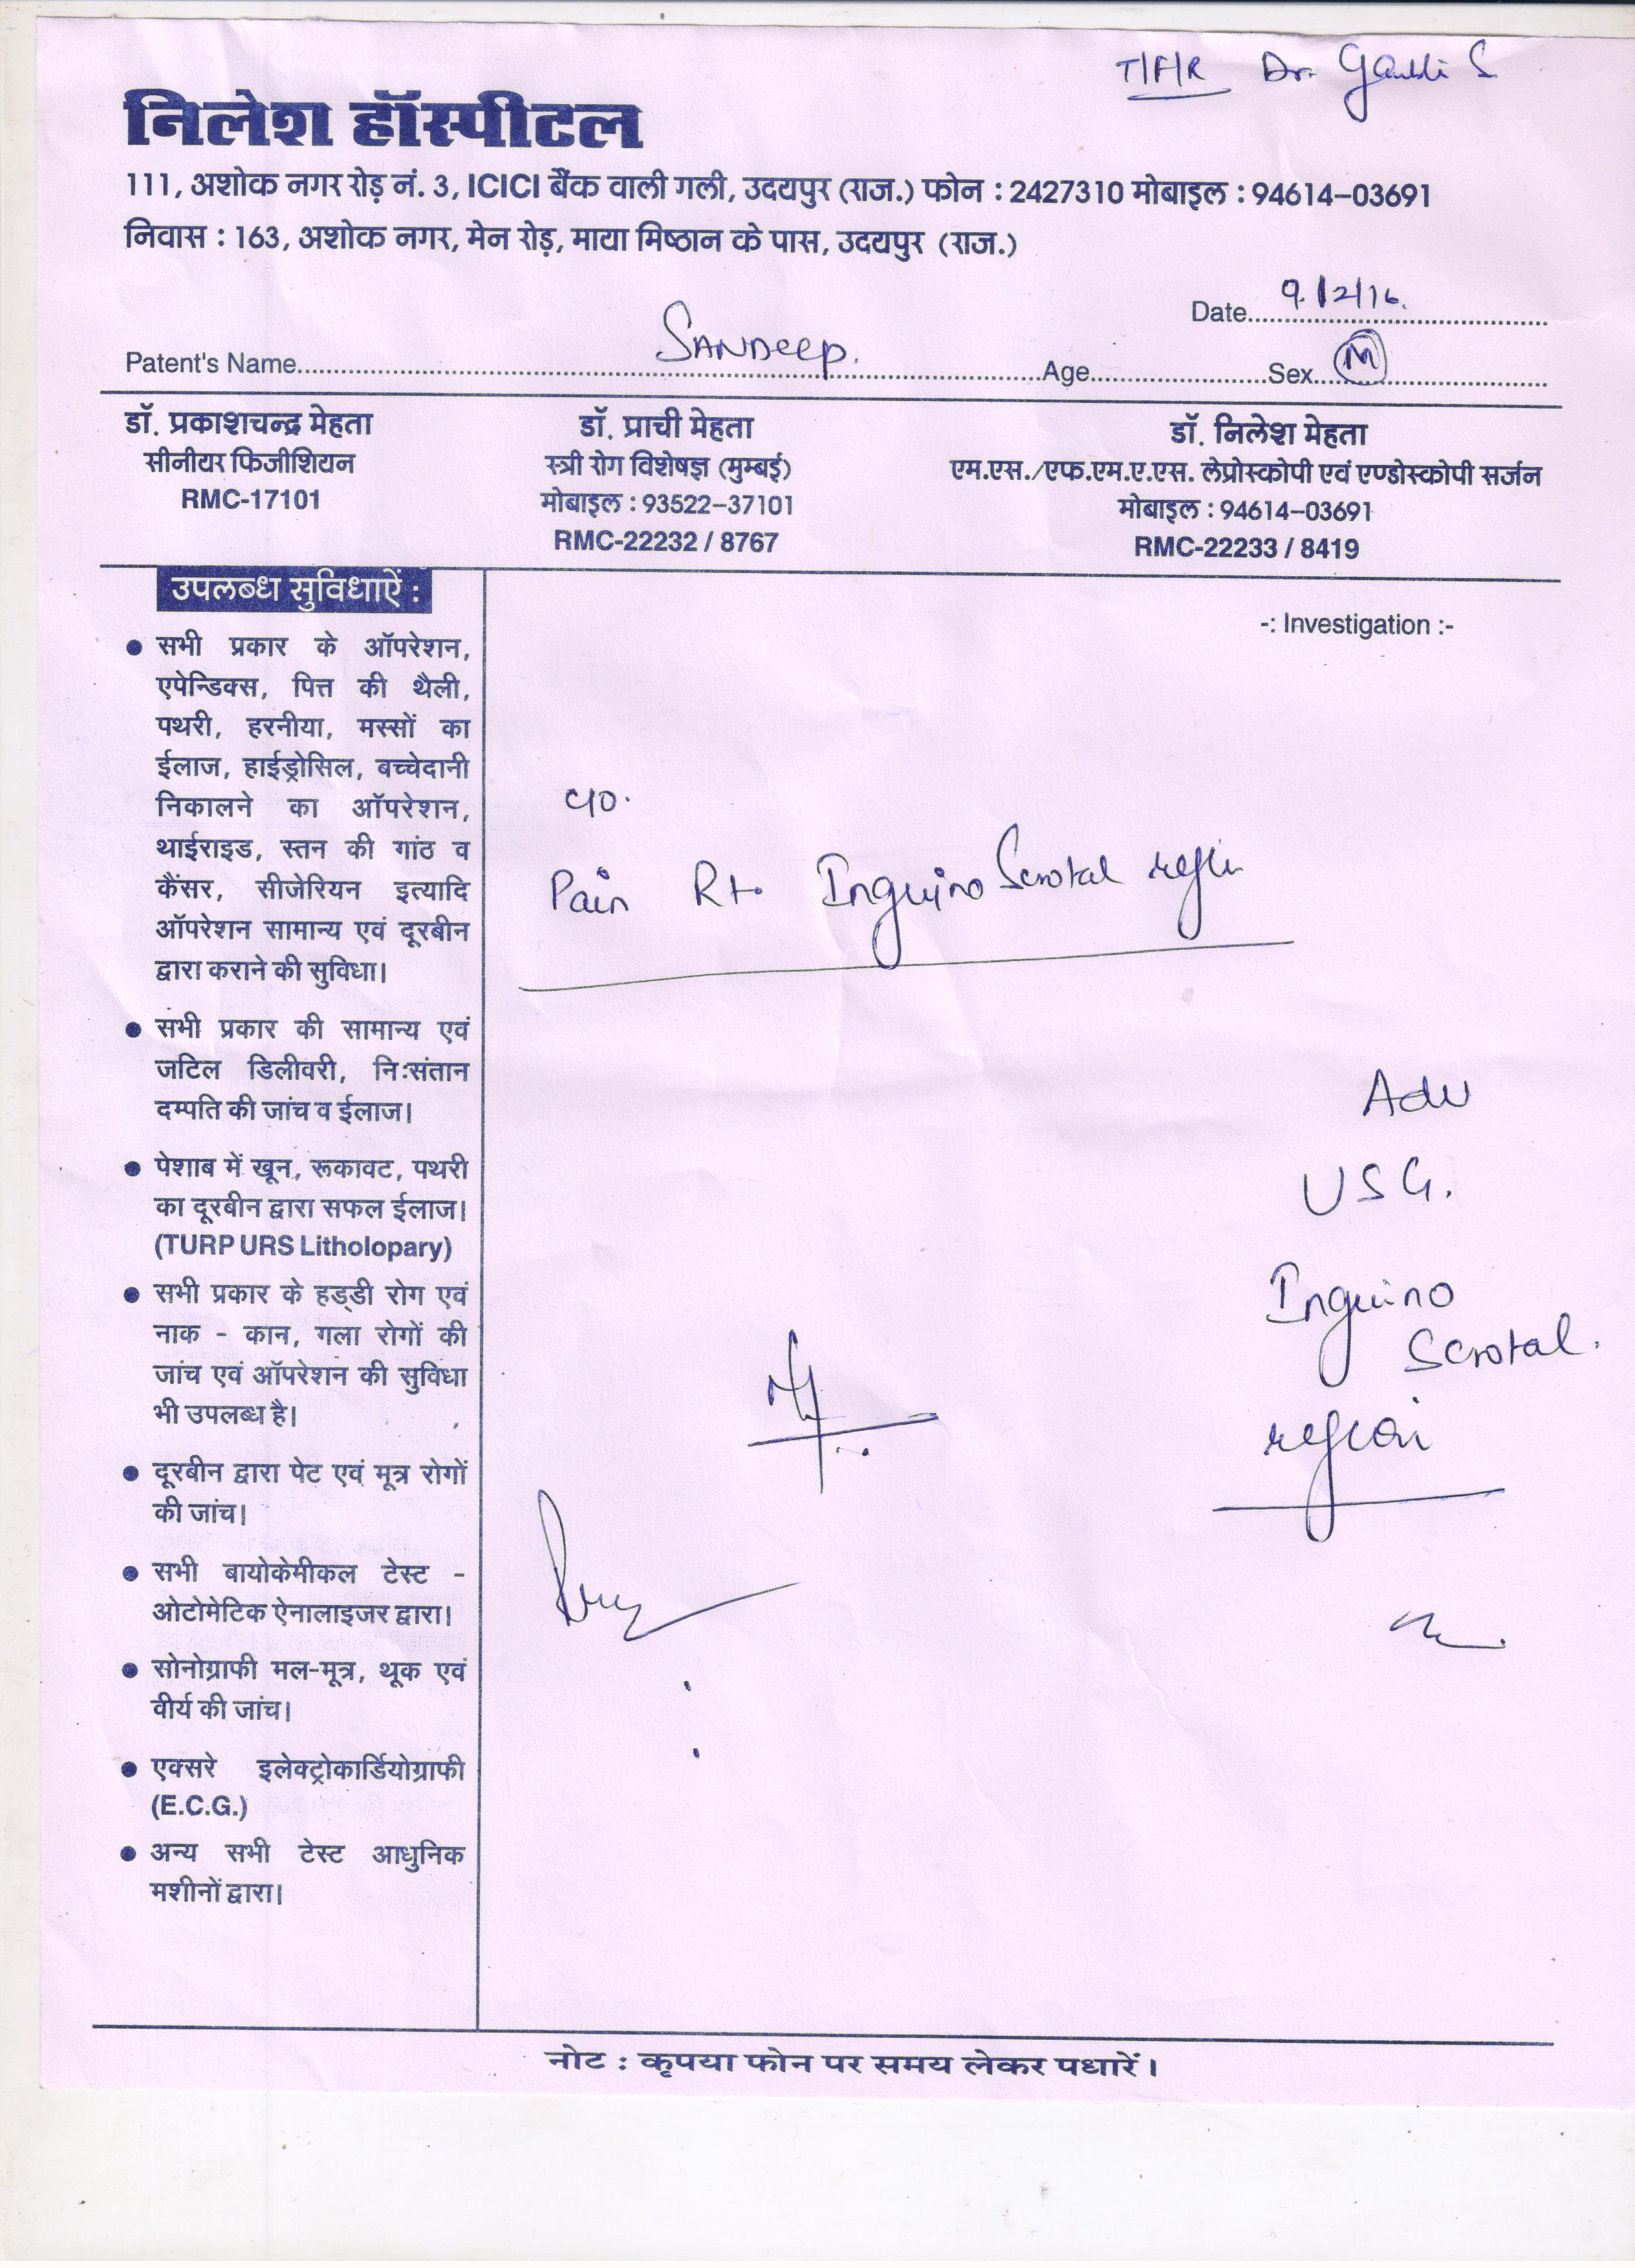 T/F/R Dr.
निलेश हॉस्पीटल
111, अशोक नगर रोड़ नं. 3, ICICI बैंक वाली गली, उदयपुर (राज.) फोन : 2427310 मोबाइल : 94614-03691
निवास : 163, अशोक नगर, मेन रोड़, माया मिष्ठान के पास, उदयपुर (राज.)
Date 9/2/16.
Patent's Name SANDEEP. Age Sex M
डॉ. प्रकाशचन्द्र मेहता
सीनीयर फिजीशियन
RMC-17101
डॉ. प्राची मेहता
स्त्री रोग विशेषज्ञ (मुम्बई)
मोबाइल : 93522-37101
RMC-22232 / 8767
डॉ. निलेश मेहता
एम.एस./एफ.एम.ए.एस. लेप्रोस्कोपी एवं एण्डोस्कोपी सर्जन
मोबाइल : 94614-03691
RMC-22233 / 8419
उपलब्ध सुविधाऐं :
● सभी प्रकार के ऑपरेशन,
एपेन्डिक्स, पित्त की थैली,
पथरी, हरनीया, मस्सों का
ईलाज, हाईड्रोसिल, बच्चेदानी
निकालने का ऑपरेशन,
थाईराइड, स्तन की गांठ व
कैंसर, सीजेरियन इत्यादि
ऑपरेशन सामान्य एवं दूरबीन
द्वारा कराने की सुविधा।
● सभी प्रकार की सामान्य एवं
जटिल डिलीवरी, निःसंतान
दम्पति की जांच व ईलाज।
● पेशाब में खून, रूकावट, पथरी
का दूरबीन द्वारा सफल ईलाज।
(TURP URS Litholopary)
● सभी प्रकार के हड्डी रोग एवं
नाक - कान, गला रोगों की
जांच एवं ऑपरेशन की सुविधा
भी उपलब्ध है।
● दूरबीन द्वारा पेट एवं मूत्र रोगों
की जांच।
● सभी बायोकेमीकल टेस्ट -
ओटोमेटिक ऐनालाइजर द्वारा।
● सोनोग्राफी मल-मूत्र, थूक एवं
वीर्य की जांच।
● एक्सरे इलेक्ट्रोकार्डियोग्राफी
(E.C.G.)
● अन्य सभी टेस्ट आधुनिक
मशीनों द्वारा।
-: Investigation :-
c/o.
Pain Rt. Inguino Scrotal region
Adv
USG.
Inguino
Scrotal.
region
नोट : कृपया फोन पर समय लेकर पधारें।